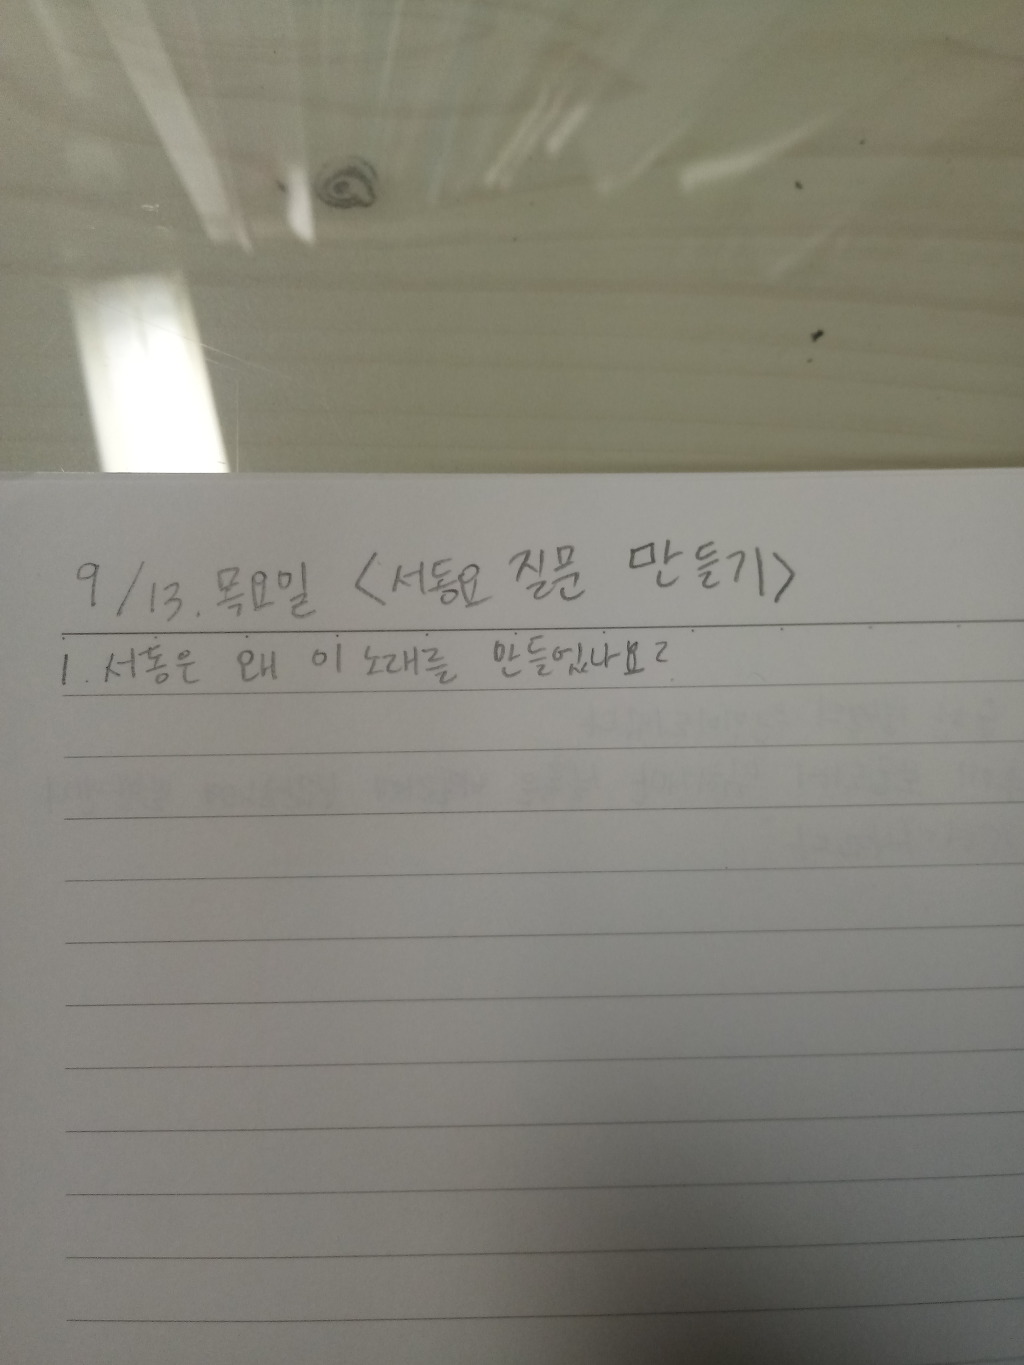 9/13. 목요일 <서동요 질문 만들기>
1. 서동은 왜 이 노래를 만들었나요?